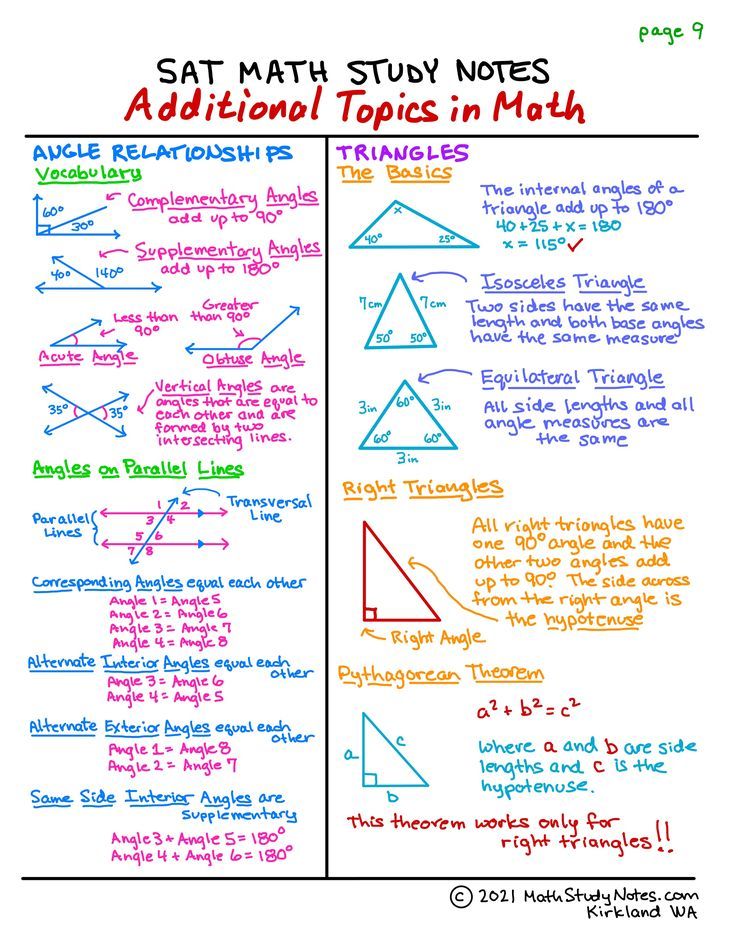 page 9
SAT MATH STUDY NOTES
Additional Topics in Math
ANGLE RELATIONSHIPS
Vocabulary
60°
30°
Complementary Angles
add up to 90°
40°
140°
Supplementary Angles
add up to 180°
Less than
90°
Acute Angle
Greater
than 90°
Obtuse Angle
35°
35°
Vertical Angles are
angles that are equal to
each other and are
formed by two
intersecting lines.
Angles on Parallel Lines
Parallel
Lines
1 2
3 4
5 6
7 8
Transversal
Line
Corresponding Angles equal each other
Angle 1 = Angle 5
Angle 2 = Angle 6
Angle 3 = Angle 7
Angle 4 = Angle 8
Alternate Interior Angles equal each
other
Angle 3 = Angle 6
Angle 4 = Angle 5
Alternate Exterior Angles equal each
other
Angle 1 = Angle 8
Angle 2 = Angle 7
Same Side Interior Angles are
supplementary
Angle 3 + Angle 5 = 180°
Angle 4 + Angle 6 = 180°
TRIANGLES
The Basics
x
40°
25°
The internal angles of a
triangle add up to 180°
40 + 25 + x = 180
x = 115° ✓
7cm
7cm
50°
50°
Isosceles Triangle
Two sides have the same
length and both base angles
have the same measure
3in
60°
3in
60°
60°
3in
Equilateral Triangle
All side lengths and all
angle measures are
the same
Right Triangles
Right Angle
All right triangles have
one 90° angle and the
other two angles add
up to 90°. The side across
from the right angle is
the hypotenuse
Pythagorean Theorem
a
c
b
a² + b² = c²
where a and b are side
lengths and c is the
hypotenuse.
This theorem works only for
right triangles!!
© 2021 MathStudyNotes.com
Kirkland WA